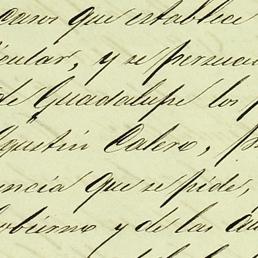 casos que establece
icular, y se persuci
de Guadalupe los p
Agustin Calero, p
encia que se pide,
Gobierno y de las au